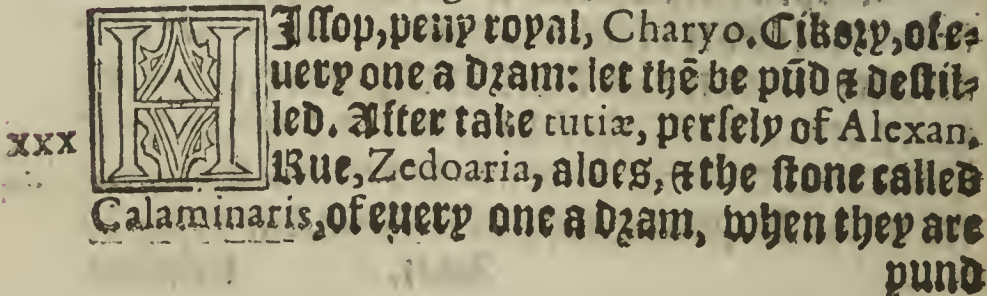 HIſſop, peny royal, Charyo. Cikory, of e⸗
uery one a dram: let thē be pūd & deſtil⸗
led. After take tutiæ, perſely of Alexan.
xxx
Rue, Zedoaria, aloes, & the ſtone called
Calaminaris, of euery one a dram, when they are
pund